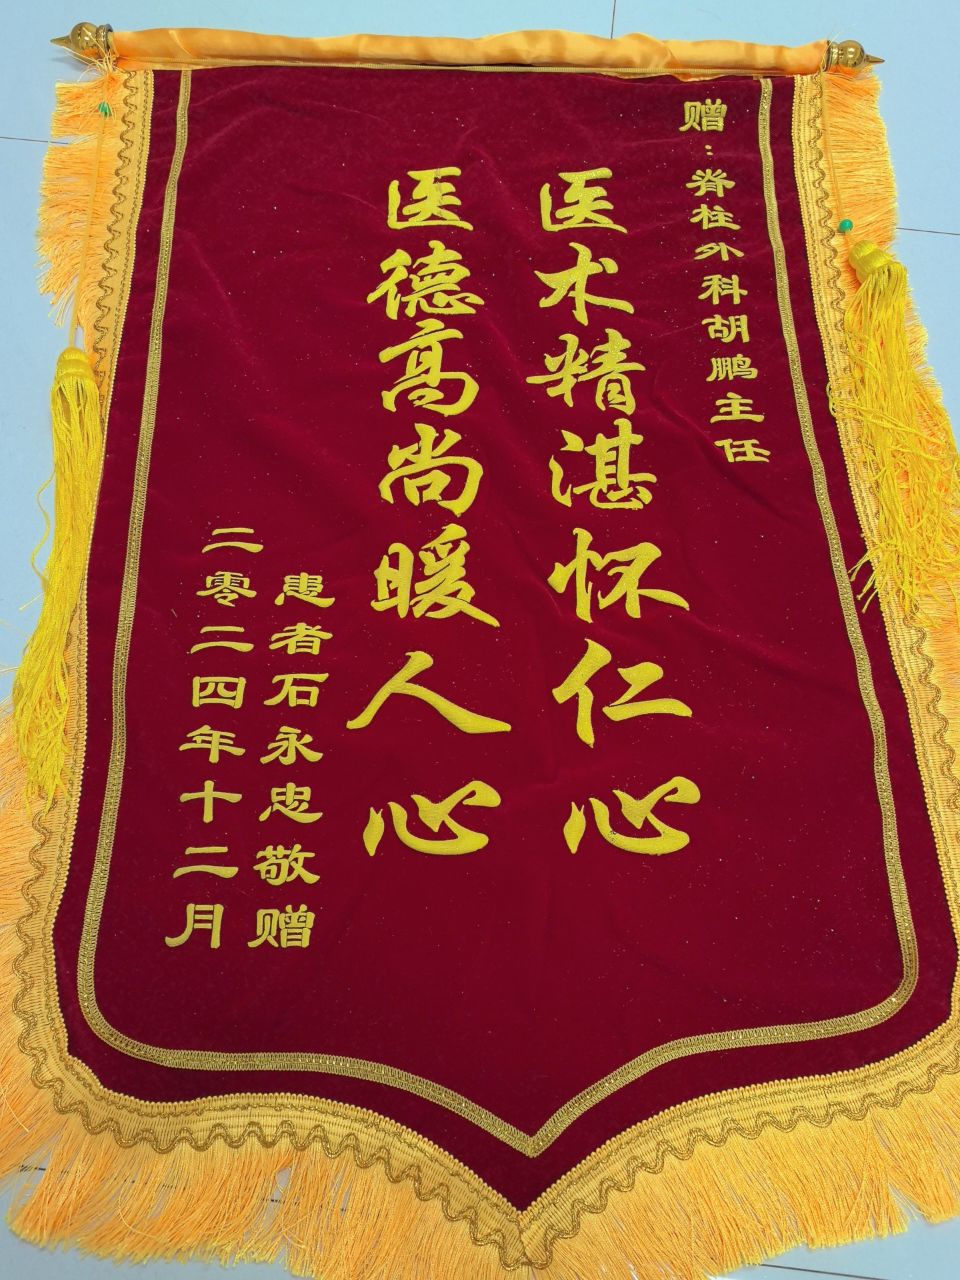 赠：脊柱外科胡鹏主任
医术精湛怀仁心
医德高尚暖人心
患者石永忠敬赠
二零二四年十二月